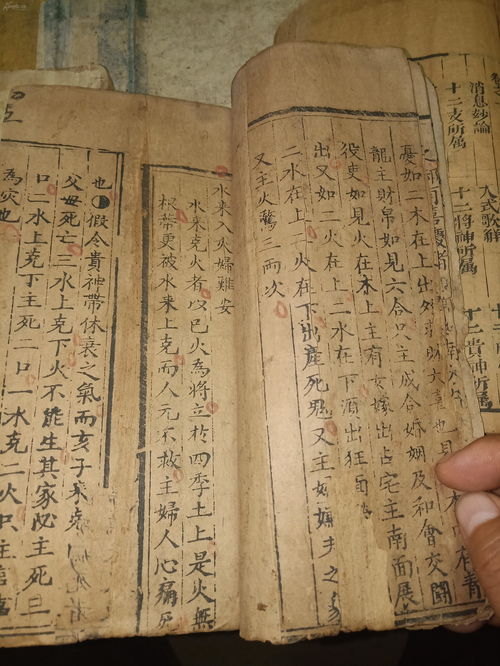 消息妙論
十二支所屬
入式歌解
十二將神所屬
十二貴神所屬
憂如二木在上出外主財大喜也
龍主財帛如見六合只主成合婚姻及和會交關
從吏如見火在木上主有女嫁出占宅主南面展
出又如二火在上二水在下酒出狂
二水在上二火在下出產死 又主 嫌夫之
又主火驚三兩次
水來入火婦難安
水來克火者以巳火為將立於四季土上是火無
根蒂更被水來上克而人元不救主婦人心痛死
也 假令貴神帶休衰之氣而亥子來克
父母死亡三水上克下火不能生其家必主死三
口二水上克下主死二口一水克二火只主
為灾也